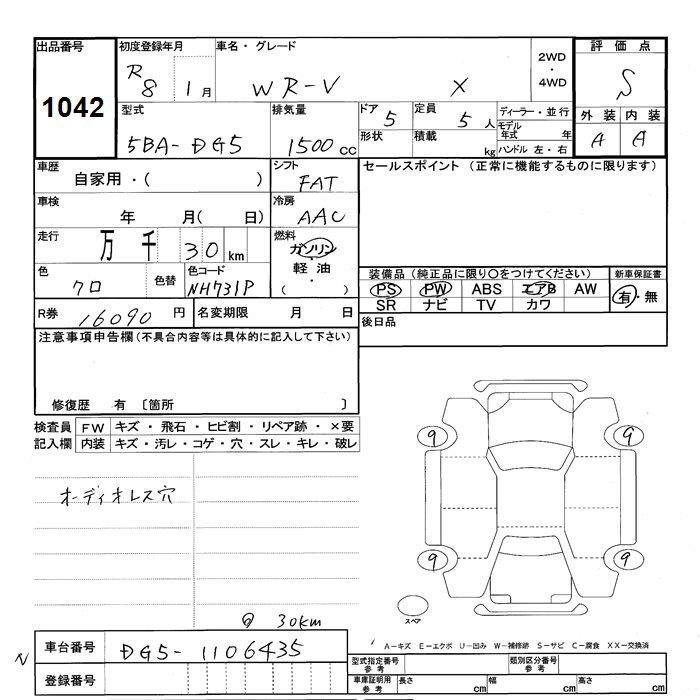 出品番号 初度登録年月 車名・グレード 評価点
1042 R8 1月 WR-V X 2WD・4WD S
型式 排気量 ドア 5 定員 5人 ディーラー・並行 外装 内装
5BA-DG5 1500cc 形状 積載 kg モデル年式 年 A A
ハンドル 左・右
車歴 シフト セールスポイント (正常に機能するものに限ります)
自家用・( ) FAT
車検 冷房
年 月( 日) AAC
走行 燃料
万 千 30 km ガソリン
軽油
( )
色 色替 色コード 装備品 (純正品に限り○をつけてください) 新車保証書
クロ NH731P PS PW ABS エアB AW 有・無
SR ナビ TV カワ
R券 16090円 名変期限 月 日 後日品
注意事項申告欄 (不具合内容等は具体的に記入して下さい)
修復歴 有 〔箇所 〕
検査員 FW キズ・飛石・ヒビ割・リペア跡・×要
記入欄 内装 キズ・汚レ・コゲ・穴・スレ・キレ・破レ
9 9
オーディオレス穴
9 9
スペア
30km
車台番号 DG5-1106435
A-キズ E-エクボ U-凹み W-補修跡 S-サビ C-腐食 XX-交換済
N
登録番号
型式指定番号 参考 類別区分番号 参考
車庫証明用 参考 長さ cm 幅 cm 高さ cm